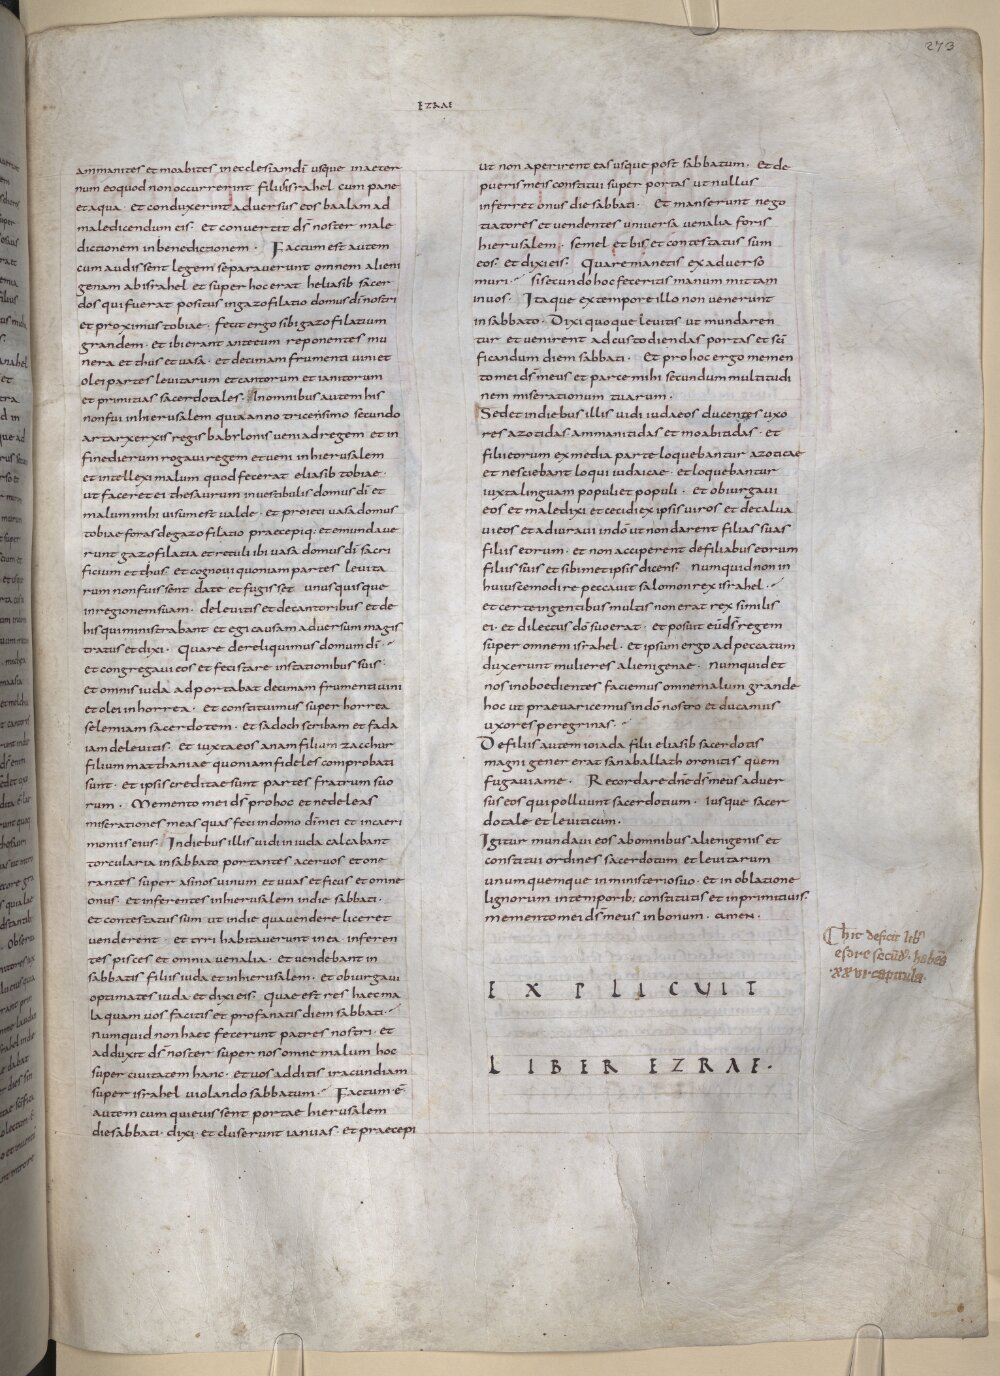 273
EZRAE
ammanites et moabites in ecclesiam dī usque in aeter
num eo quod non occurrerint filiis israhel cum pane
et aqua · et conduxerint adversus eos baalam ad
maledicendum eis · Et convertit ds̄ noster male
dictionem in benedictionem · Factum est autem
cum audissent legem separaverunt omnem alieni
genam ab israhel et super hoc erat heliasib sacer
dos qui fuerat positus in gazofilatio domus dī nostri
et proximus tobiae · fecit ergo sibi gazofilatium
grandem · et ibi erant ante eum reponentes mu
nera et thus et vasa · et decimam frumenti vini et
olei partes levitarum et cantorum et ianitorum
et primitias sacerdotales · In omnibus autem his
non fui in hierusalem quia anno tricensimo secundo
artarxerxis regis babylonis veni ad regem et in
fine dierum rogavi regem et veni in hierusalem
et intellexi malum quod fecerat eliasib tobiae ·
ut faceret ei thesaurum in vestibulis domus dī et
malum mihi visum est valde · et proieci vasa domus
tobiae foras de gazofilatio praecepiq; et emundave
runt gazofilatia et retuli ibi vasa domus dī sacri
ficium et thus · et cognovi quoniam partes levita
rum non fuissent date et fugisset unusquisque
in regionem suam · de levitis et de cantoribus et de
his qui ministrabant et egi causam adversum magis
tratus et dixi · Quare dereliquimus domum dī ·
et congregavi eos et feci stare in stationibus suis ·
et omnis iuda adportabat decimam frumenti vini
et olei in horrea · et constituimus super horrea
selemiam sacerdotem · et sadoch scribam et fada
iam de levitis · et iuxta eos anam filium zacchur
filium matthaniae quoniam fideles comprobati
sunt · et ipsis creditae sunt partes fratrum suo
rum · Memento mei ds̄ pro hoc et ne deleas
miserationes meas quas feci in domo dī mei et in caeri
moniis eius · In diebus illis vidi in iuda calcabant
torcularia in sabbato portantes acervos et one
rantes super asinos vinum et uvas et ficus et omne
onus · et inferentes in hierusalem in die sabbati ·
et contestatus sum ut in die qua vendere liceret
venderent · et tirii habitaverunt in ea inferen
tes pisces et omnia venalia · et vendebant in
sabbatis filiis iuda et in hierusalem · et obiurgavi
optimates iuda et dixi eis · Quae est res haec ma
la quam vos facitis et profanatis diem sabbati ·
Numquid non haec fecerunt patres nostri · et
adduxit ds̄ noster super nos omne malum hoc
super civitatem hanc · et vos additis iracundiam
super israhel violando sabbatum · Factum ē
autem cum quievissent portae hierusalem
die sabbati · dixi · et cluserunt ianuas · et praecepi
ut non aperirent eas usque post sabbatum · Et de
pueris meis constitui super portas ut nullus
inferret onus die sabbati · Et manserunt nego
tiatores et vendentes universa venalia foris
hierusalem · semel et bis et contestatus sum
eos · et dixi eis · Quare manetis ex adverso
muri · si secundo hoc feceritis manum mittam
in vos · Itaque ex tempore illo non venerunt
in sabbato · Dixi quoque levitis ut mundaren
tur et venirent ad custodiendas portas et scī
ficandum diem sabbati · Et pro hoc ergo memen
to mei ds̄ meus et parce mihi secundum multitudi
nem miserationum tuarum ·
Sed et in diebus illis vidi iudaeos ducentes uxo
res azotidas ammanitidas et moabitidas · et
filii eorum ex media parte loquebantur azoticae
et nesciebant loqui iudaicae · et loquebantur
iuxta linguam populi et populi · et obiurgavi
eos et maledixi et cecidi ex ipsis viros et decalva
vi eos et adiuravi in dō ut non darent filias suas
filiis eorum · et non acciperent de filiabus eorum
filiis suis et sibimet ipsis dicens · Numquid non in
huiuscemodi re peccavit salomon rex israhel ·
et certe in gentibus multis non erat rex similis
ei · et dilectus dō suo erat · et posuit eū ds̄ regem
super omnem israhel · et ipsum ergo ad peccatum
duxerunt mulieres alienigenae · Numquid et
nos inoboedientes faciemus omne malum grande
hoc ut praevaricemus in dō nostro et ducamus
uxores peregrinas ·
De filiis autem ioiada filii eliasib sacerdotis
magni gener erat sanaballath oronitis quem
fugavi a me · Recordare dn̄e ds̄ meus adver
sus eos qui polluunt sacerdotium · iusque sacer
dotale et leviticum ·
Igitur mundavi eos ab omnibus alienigenis et
constitui ordines sacerdotum et levitarum
unumquemque in ministerio suo · et in oblatione
lignorum in temporib; constitutis et in primitivis ·
memento mei ds̄ meus in bonum · amen ·
EXPLICUIT
LIBER EZRAE ·
hic deficit lib'
esdre secūd' · habēs
xxvi capitula ·